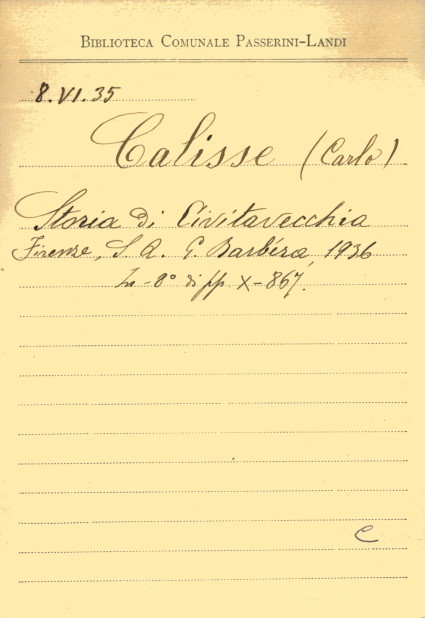 BIBLIOTECA COMUNALE PASSERINI-LANDI
8.VI.35
Calisse (Carlo)
Storia di Civitavecchia
Firenze, S. A. G. Barbéra, 1936
In-8° di pp. X-867.
C